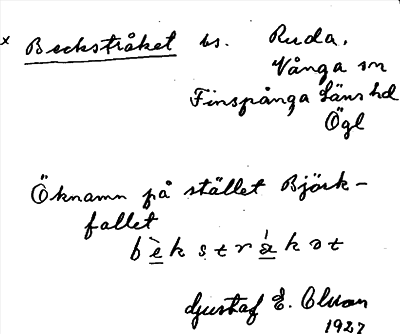 x Beckstråket bs. Ruda,
Vånga sn
Finspånga Läns hd
Ögl
Öknamn på stället Björk-
fallet
bèkstråkət
Gustaf E. Olsson
1927